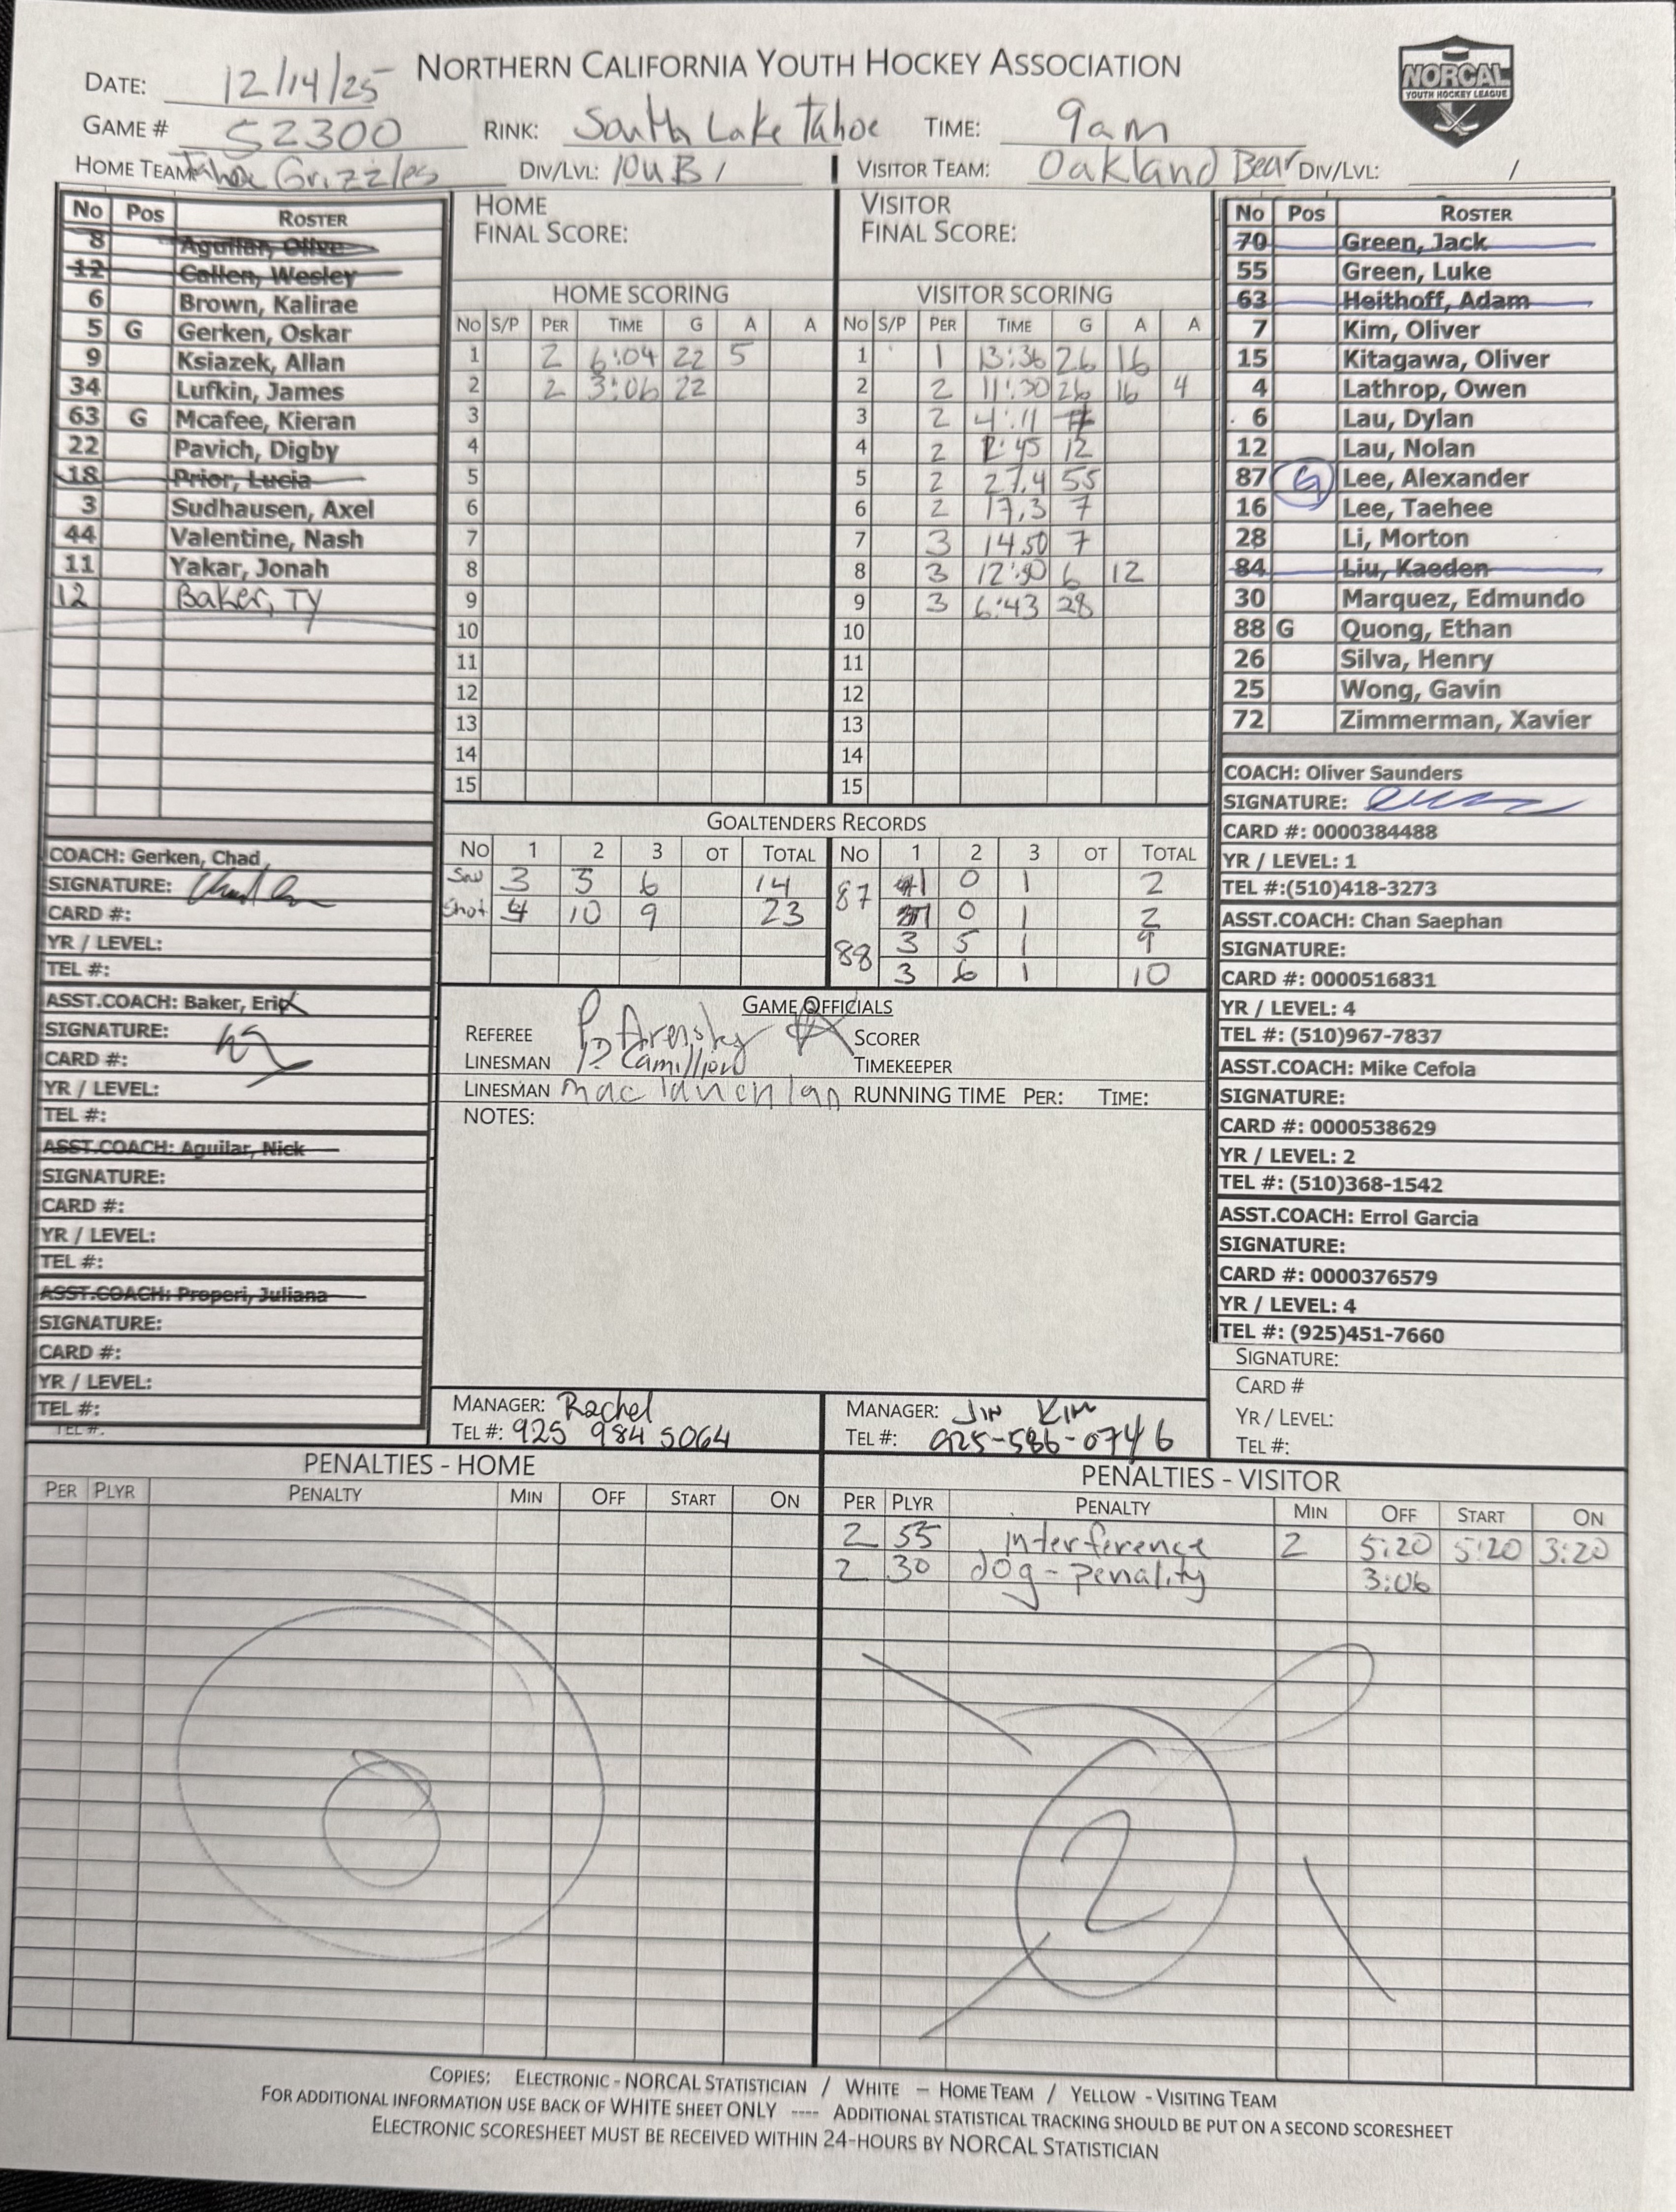 NORTHERN CALIFORNIA YOUTH HOCKEY ASSOCIATION
NORCAL
YOUTH HOCKEY LEAGUE
DATE: 12/14/25
GAME # 52300 RINK: South Lake Tahoe TIME: 9am
HOME TEAM: Tahoe Grizzles DIV/LVL: 10U B / VISITOR TEAM: Oakland Bear DIV/LVL: /
No Pos ROSTER
8 Aguilar, Olive
12 Callen, Wesley
6 Brown, Kalirae
5 G Gerken, Oskar
9 Ksiazek, Allan
34 Lufkin, James
63 G Mcafee, Kieran
22 Pavich, Digby
18 Prior, Lucia
3 Sudhausen, Axel
44 Valentine, Nash
11 Yakar, Jonah
12 Baker, Ty
COACH: Gerken, Chad
SIGNATURE:
CARD #:
YR / LEVEL:
TEL #:
ASST.COACH: Baker, Erick
SIGNATURE:
CARD #:
YR / LEVEL:
TEL #:
ASST.COACH: Aguilar, Nick
SIGNATURE:
CARD #:
YR / LEVEL:
TEL #:
ASST.COACH: Properi, Juliana
SIGNATURE:
CARD #:
YR / LEVEL:
TEL #:
TEL #:
HOME
FINAL SCORE:
VISITOR
FINAL SCORE:
HOME SCORING
No S/P PER TIME G A A
1 2 6:04 22 5
2 2 3:06 22
3
4
5
6
7
8
9
10
11
12
13
14
15
VISITOR SCORING
No S/P PER TIME G A A
1 1 13:36 26 16
2 2 11:30 26 16 4
3 2 4:11 7
4 2 2:45 12
5 2 27.4 55
6 2 17.3 7
7 3 14:50 7
8 3 12:30 6 12
9 3 6:43 28
10
11
12
13
14
15
GOALTENDERS RECORDS
No 1 2 3 OT TOTAL No 1 2 3 OT TOTAL
Sav 3 5 6 14 87 1 0 1 2
Shot 4 10 9 23 1 0 1 2
88 3 5 1 9
3 6 1 10
GAME OFFICIALS
REFEREE P. Arensky SCORER
LINESMAN D Camilliow TIMEKEEPER
LINESMAN mac lauchlan RUNNING TIME PER: TIME:
NOTES:
MANAGER: Rachel
TEL #: 925 984 5064
MANAGER: Jin Kim
TEL #: 925-586-0746
No Pos ROSTER
70 Green, Jack
55 Green, Luke
63 Heithoff, Adam
7 Kim, Oliver
15 Kitagawa, Oliver
4 Lathrop, Owen
6 Lau, Dylan
12 Lau, Nolan
87 G Lee, Alexander
16 Lee, Taehee
28 Li, Morton
84 Liu, Kaeden
30 Marquez, Edmundo
88 G Quong, Ethan
26 Silva, Henry
25 Wong, Gavin
72 Zimmerman, Xavier
COACH: Oliver Saunders
SIGNATURE:
CARD #: 0000384488
YR / LEVEL: 1
TEL #:(510)418-3273
ASST.COACH: Chan Saephan
SIGNATURE:
CARD #: 0000516831
YR / LEVEL: 4
TEL #: (510)967-7837
ASST.COACH: Mike Cefola
SIGNATURE:
CARD #: 0000538629
YR / LEVEL: 2
TEL #: (510)368-1542
ASST.COACH: Errol Garcia
SIGNATURE:
CARD #: 0000376579
YR / LEVEL: 4
TEL #: (925)451-7660
SIGNATURE:
CARD #
YR / LEVEL:
TEL #:
PENALTIES - HOME
PER PLYR PENALTY MIN OFF START ON
0
PENALTIES - VISITOR
PER PLYR PENALTY MIN OFF START ON
2 55 interference 2 5:20 5:20 3:20
2 30 dog-penality 3:06
2
COPIES: ELECTRONIC - NORCAL STATISTICIAN / WHITE – HOME TEAM / YELLOW - VISITING TEAM
FOR ADDITIONAL INFORMATION USE BACK OF WHITE SHEET ONLY ---- ADDITIONAL STATISTICAL TRACKING SHOULD BE PUT ON A SECOND SCORESHEET
ELECTRONIC SCORESHEET MUST BE RECEIVED WITHIN 24-HOURS BY NORCAL STATISTICIAN